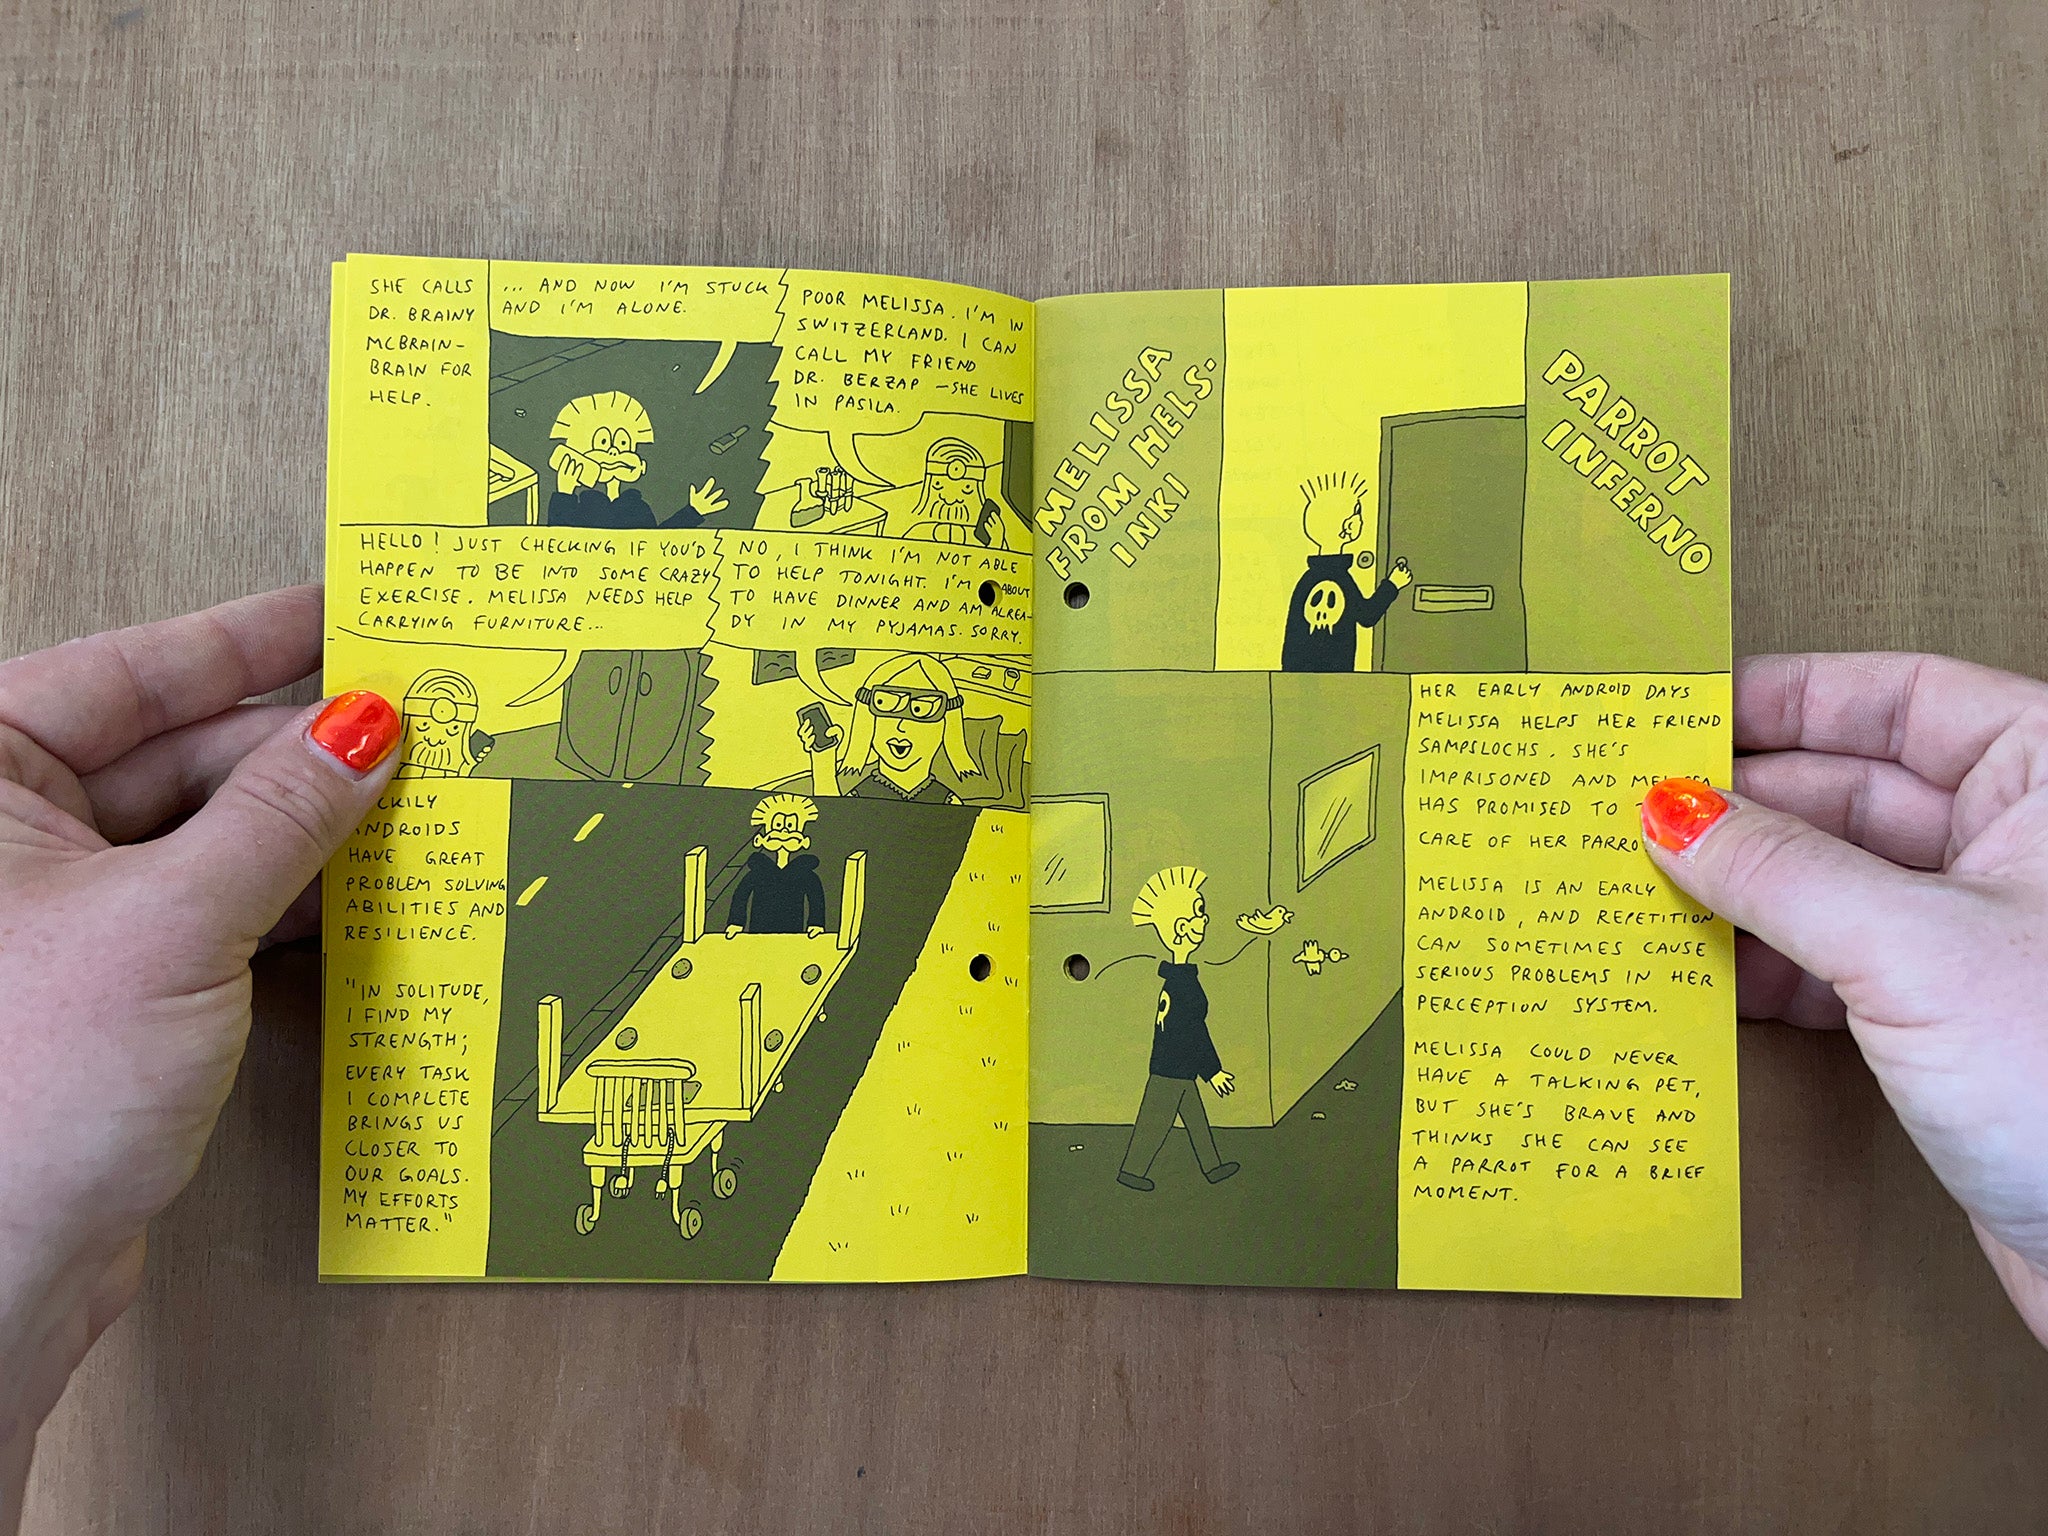 SHE CALLS
DR. BRAINY
MCBRAIN-
BRAIN FOR
HELP.
... AND NOW I'M STUCK
AND I'M ALONE.
POOR MELISSA. I'M IN
SWITZERLAND. I CAN
CALL MY FRIEND
DR. BERZAP - SHE LIVES
IN PASILA.
HELLO! JUST CHECKING IF YOU'D
HAPPEN TO BE INTO SOME CRAZY
EXERCISE. MELISSA NEEDS HELP
CARRYING FURNITURE...
NO, I THINK I'M NOT ABLE
TO HELP TONIGHT. I'M ABOUT
TO HAVE DINNER AND AM ALREA-
DY IN MY PYJAMAS. SORRY.
ANDROIDS
HAVE GREAT
PROBLEM SOLVING
ABILITIES AND
RESILIENCE.
"IN SOLITUDE,
I FIND MY
STRENGTH;
EVERY TASK
I COMPLETE
BRINGS US
CLOSER TO
OUR GOALS.
MY EFFORTS
MATTER."
MELISSA
FROM HELS-
INKI
PARROT
INFERNO
HER EARLY ANDROID DAYS
MELISSA HELPS HER FRIEND
SAMPSLOCHS. SHE'S
IMPRISONED AND MELISSA
HAS PROMISED TO
CARE OF HER
MELISSA IS AN EARLY
ANDROID, AND REPETITION
CAN SOMETIMES CAUSE
SERIOUS PROBLEMS IN HER
PERCEPTION SYSTEM.
MELISSA COULD NEVER
HAVE A TALKING PET,
BUT SHE'S BRAVE AND
THINKS SHE CAN SEE
A PARROT FOR A BRIEF
MOMENT.